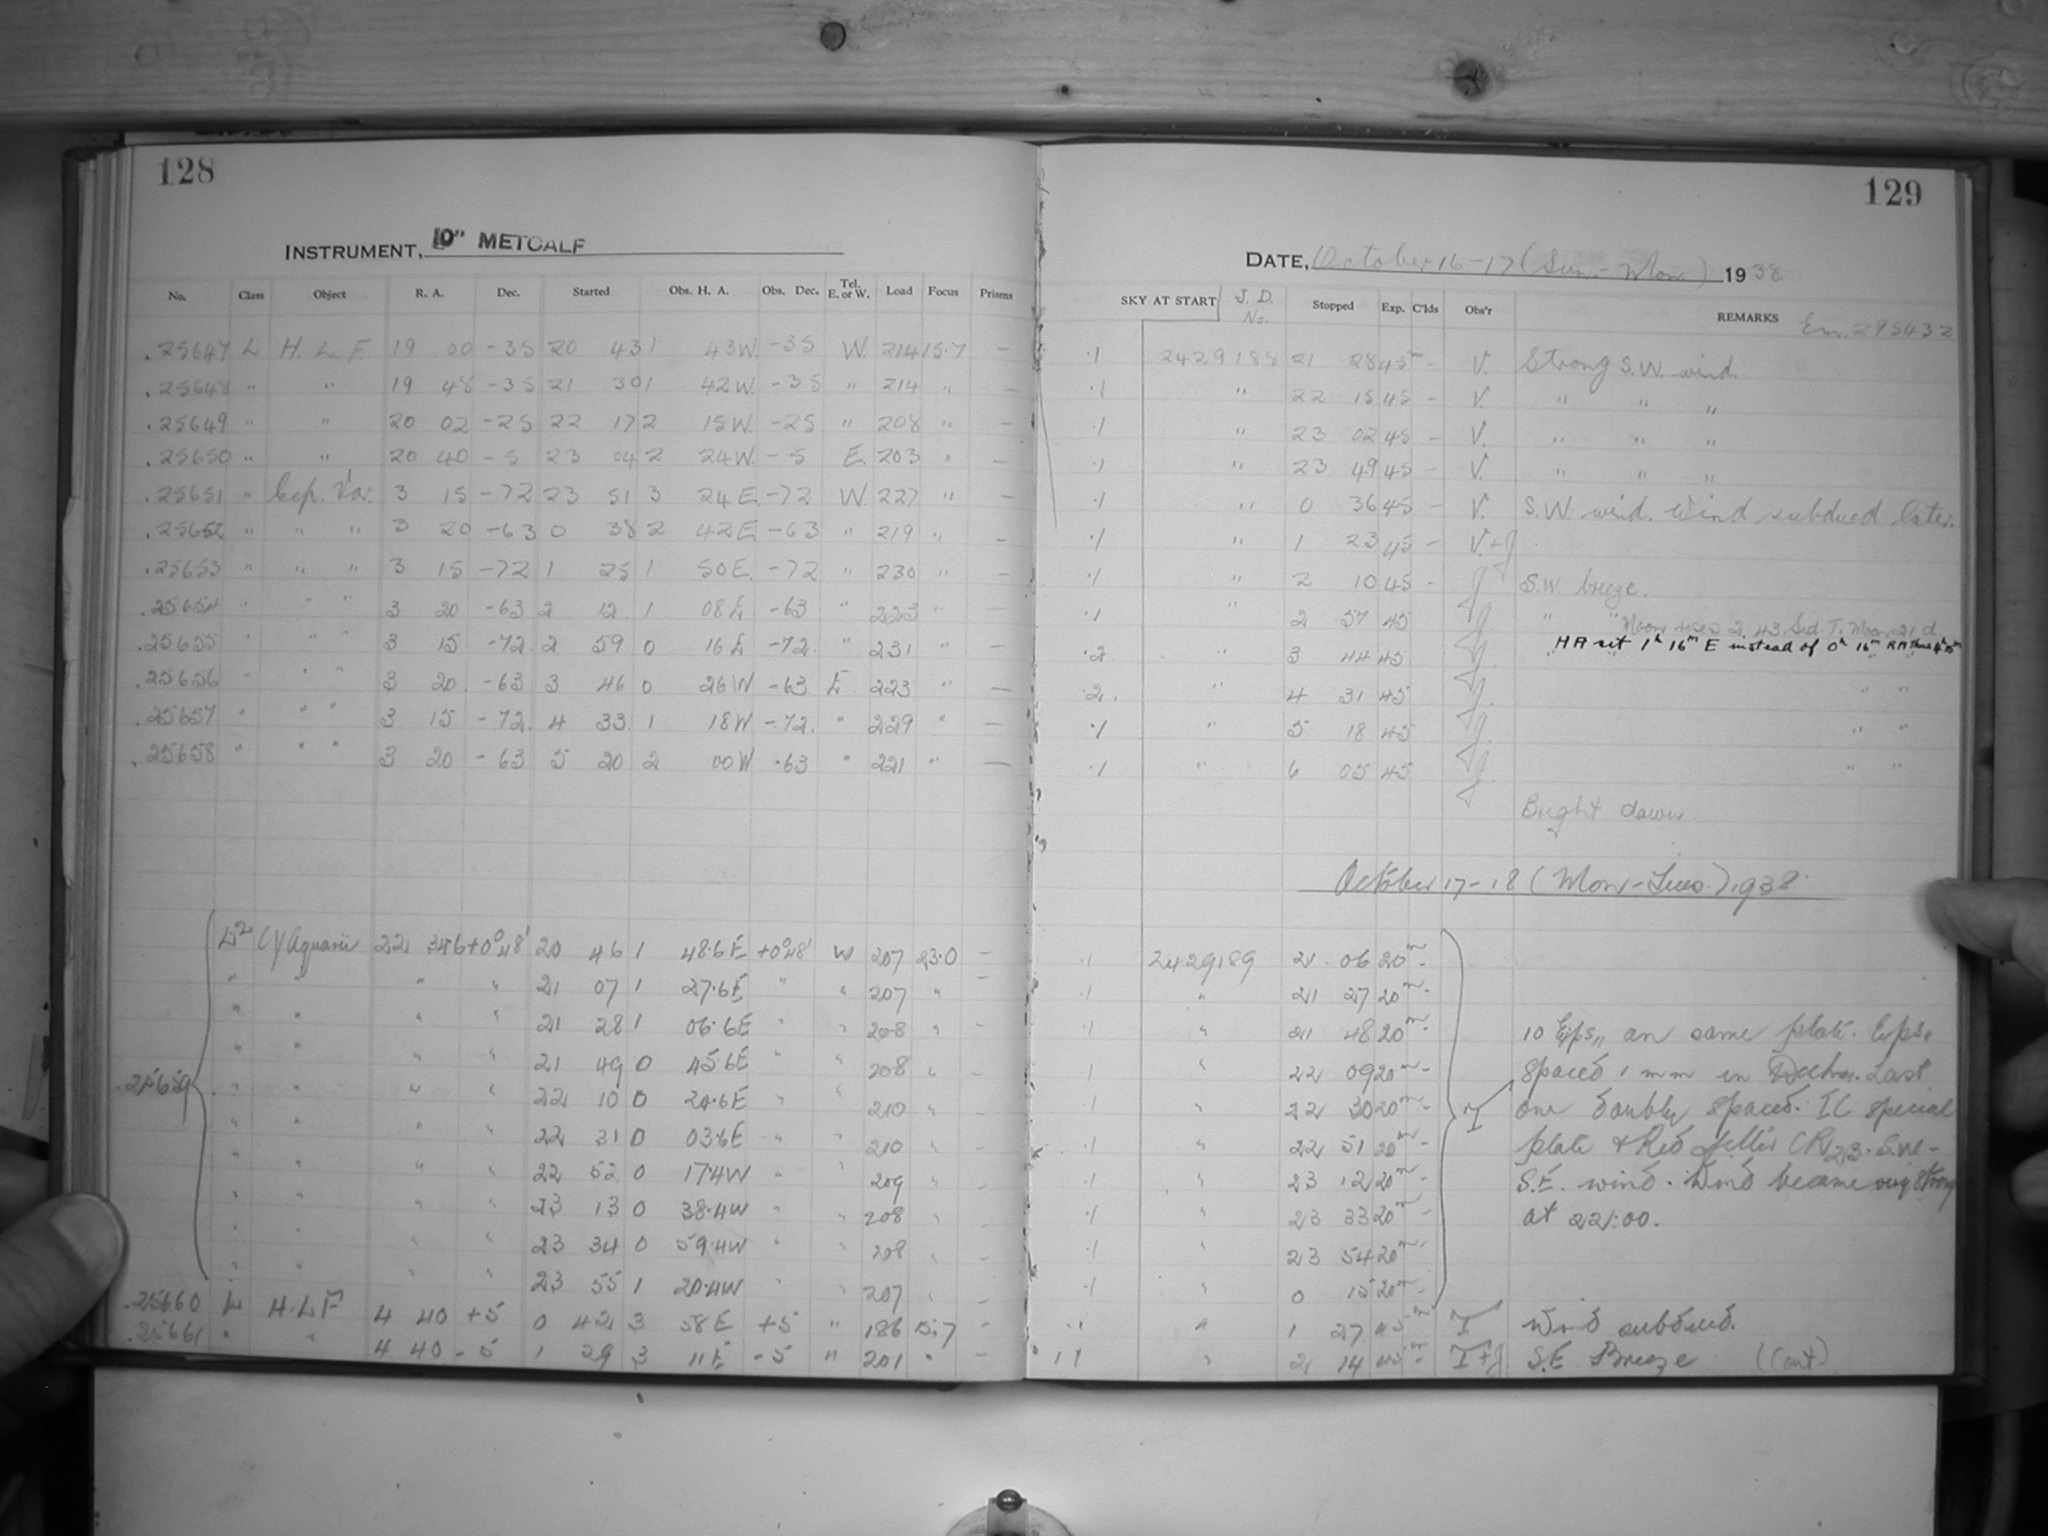 128
INSTRUMENT, 10" METCALF
No. Class Object R. A. Dec. Started Obs. H. A. Obs. Dec. Tel. E. or W. Load Focus Prisms
.25647 L H. L. F. 19 00 -35 20 43 1 43W. -35 W. 214 15.7 —
.25648 " " 19 48 -35 21 30 1 42W. -35 " 214 " —
.25649 " " 20 02 -25 22 17 2 15W. -25 " 208 " —
.25650 " " 20 40 -5 23 04 2 24W. -5 E. 203 " —
.25651 " Cep. Var. 3 15 -72 23 51 3 24E. -72 W. 227 " —
.25652 " " " 3 20 -63 0 38 2 42E -63 " 219 " —
.25653 " " " 3 15 -72 1 25 1 50E. -72 " 230 " —
.25654 " " " 3 20 -63 2 12 1 08E -63 " 223 " —
.25655 " " " 3 15 -72 2 59 0 16E -72 " 231 " —
.25656 " " " 3 20 -63 3 46 0 26W -63 E 223 " —
.25657 " " " 3 15 -72 4 33 1 18W -72 " 229 " —
.25658 " " " 3 20 -63 5 20 2 00W -63 " 221 " —
L2 Aquarii 22 34.6 +0°48' 20 46 1 48.6E +0°48' W 207 23.0 —
" " " " 21 07 1 27.6E " " 207 " —
" " " " 21 28 1 06.6E " " 208 " —
" " " " 21 49 0 45.6E " " 208 " —
.25659 " " " " 22 10 0 24.6E " " 210 " —
" " " " 22 31 0 03.6E " " 210 " —
" " " " 22 52 0 17.4W " " 209 " —
" " " " 23 13 0 38.4W " " 208 " —
" " " " 23 34 0 59.4W " " 208 " —
" " " " 23 55 1 20.4W " " 207 " —
.25660 L H.L.F 4 40 +5 0 42 3 58E +5 " 186 15.7 —
.25661 " " 4 40 -5 1 29 3 11E -5 " 201 " —
129
DATE, October 16-17 (Sun.-Mon.) 1938
SKY AT START J. D. No. Stopped Exp. C'lds Obs'r REMARKS Em. 295432
.1 2429188 21 28 45m — V. Strong S.W. wind.
.1 " 22 15 45 — V. " " "
.1 " 23 02 45 — V. " " "
.1 " 23 49 45 — V. " " "
.1 " 0 36 45 — V. S.W. wind. Wind subdued later.
.1 " 1 23 45 — V.+J.
.1 " 2 10 45 — J S.W. breeze.
.1 " 2 57 45 J " " Moon rises 2.43 Sid T. Moon 21 d
.2 " 3 44 45 J HA set 1h 16m E instead of 0h 16m RA thus 4h 15m
.2 " 4 31 45 J. " "
.1 " 5 18 45 J. " "
.1 " 6 05 45 J. " "
Bright dawn
October 17-18 (Mon-Tues.) 1938
.1 2429189 21 06 20m —
.1 " 21 27 20m —
.1 " 21 48 20m — 10 Exps., on same plate. Exps.
.1 " 22 09 20m — spaced 1 mm in Decln. Last
.1 " 22 30 20m — T one doubly spaced. IC special
.1 " 22 51 20m — plate & Red filter CR213. S.W-
.1 " 23 12 20m — S.E. wind. Wind became very strong
.1 " 23 33 20m — at 22:00.
.1 " 23 54 20m —
.1 " 0 15 20m —
.1 " 1 27 45m — T Wind subdued.
.1 " 2 14 45m — T+J S.E Breeze (Cont)